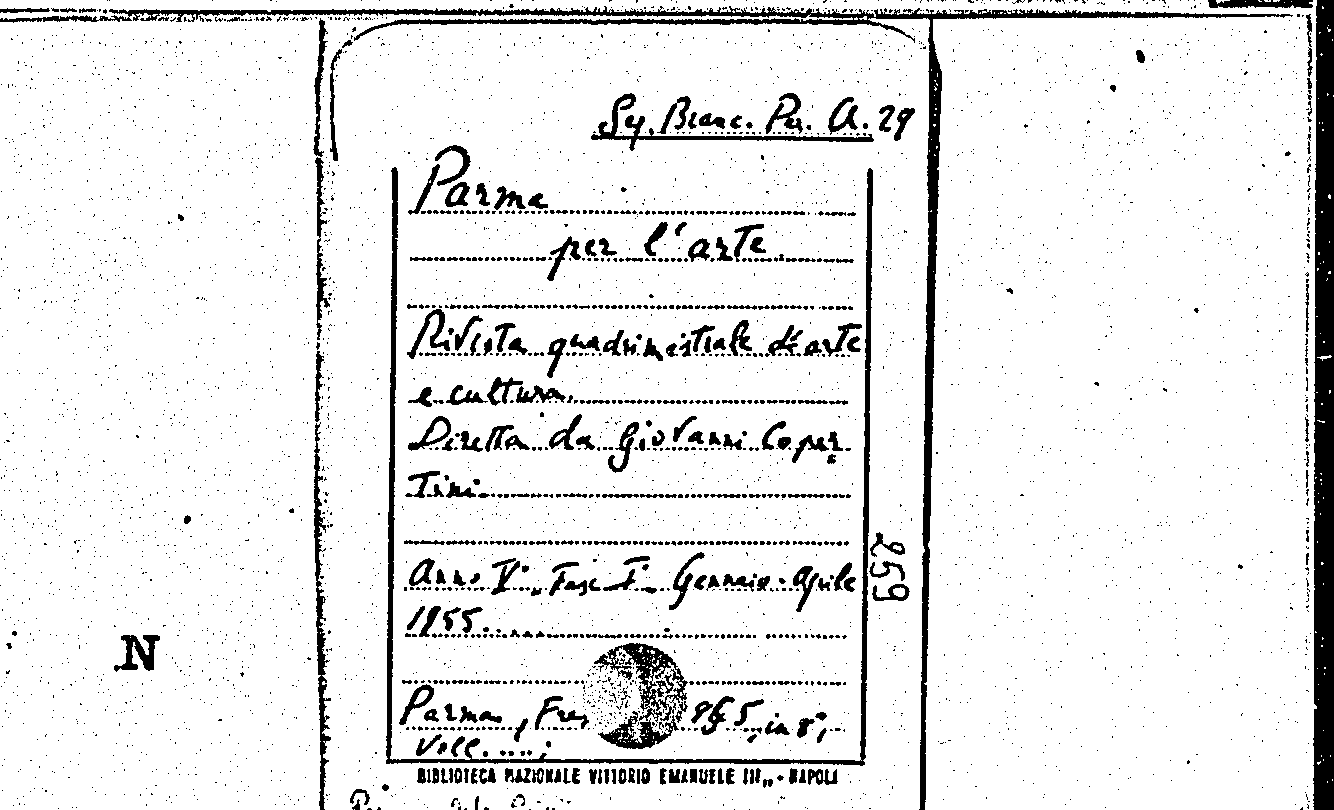 Sy. Branc. Per. A. 29
Parma
per l'arte.
Rivista quadrimestrale d'arte
e cultura.
Diretta da Giovanni Coper-
Tini.
Anno V°. Fasc I°. Gennaio-Aprile
1955.......
259
N
Parma, Fre 955, in 8°,
Voll. ....;
BIBLIOTECA NAZIONALE VITTORIO EMANUELE III„ - NAPOLI